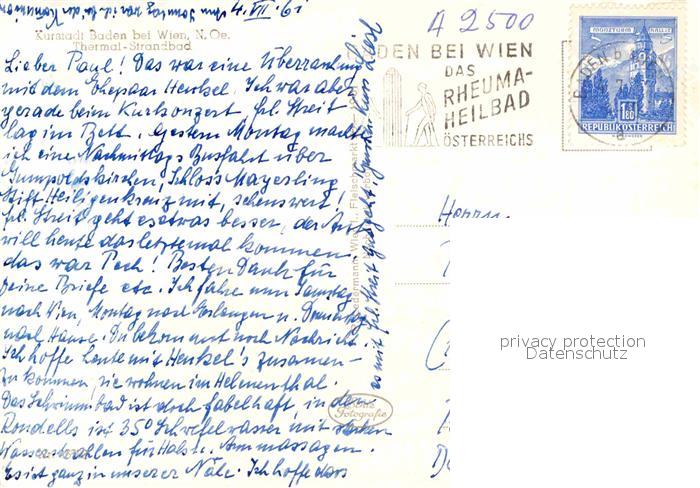 4. VII. 61
Am Sonntag war ich bei der Kommunion
Kurstadt Baden bei Wien, N. Oe.
Thermal-Strandbad
Lieber Paul! Das war eine Überraschung
mit dem Ehepaar Henkel. Ich war aber
gerade beim Kurkonzert. Frl. Streit
lag im Bett. Gestern Montag machte
ich eine Nachmittags Busfahrt über
Gumpoldskirchen, Schloss Mayerling
Stift Heiligenkreuz mit, sehenswert!
Frl. Streit geht es etwas besser, der Arzt
will heute das letztemal kommen.
das war Pech! Besten Dank für
Deine Briefe etc. Ich fahre nun Samstag
nach Wien, Montag nach Erlangen u. Donnerstag
nach Hause. Du bekommst noch Nachricht.
Ich hoffe heute mit Henkel's zusammen-
zukommen, sie wohnen im Helenenthal.
Das Schwimmbad ist doch fabelhaft, in den
Rondells ist 35° Schwefelwasser mit
Wasserstrahlen für Hals u. Armmassagen.
Es ist ganz in unserer Nähe. Ich hoffe dass
es mit Frl. Streit gut geht! Gruss Liesl
A 2500
DEN BEI WIEN
DAS
RHEUMA-
HEILBAD
ÖSTERREICHS
MÜNZTURM HALL
1.80
REPUBLIK ÖSTERREICH
Herrn
Fotografie
privacy protection
Datenschutz